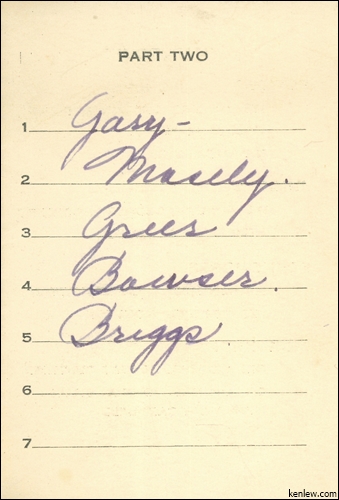 PART TWO
1 Gary-
2 Mosely.
3 Greer
4 Bowser.
5 Briggs.
6
7
kenlew.com